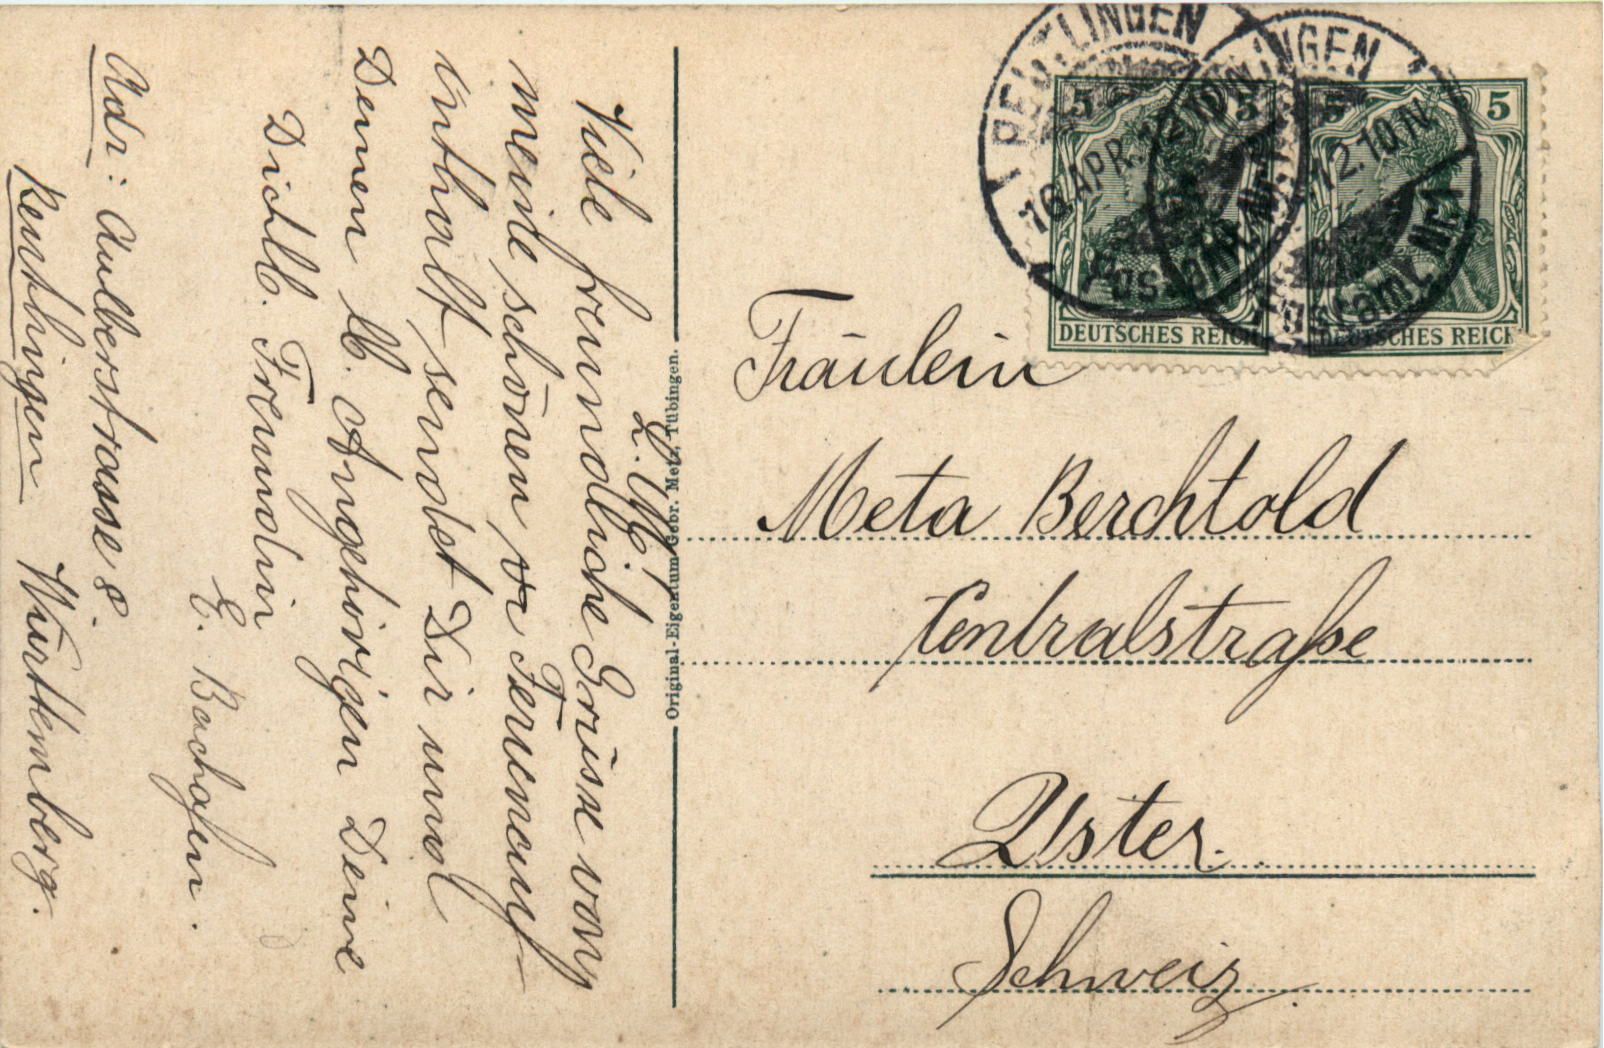 L. M.!
Viele freundliche Grüsse von
meine schönen Ferienauf-
enthalt sendet Dir und
Deinen lb. Angehörigen Deine
Dichlb. Freundin
E. Bachofen.
Adr: Aulberstrasse 8.
Reuthingen Würtemberg.
Original-Eigentum Gebr. Metz, Tübingen.
REUTLINGEN
16 APR. 12. 10
Postamt Nr. 1
LINGEN
12. 10 N.
Postamt Nr. 1
5 5
DEUTSCHES REICH
5 5
DEUTSCHES REICH
Fräulein
Meta Berchtold
Centralstraße
Uster.
Schweiz.